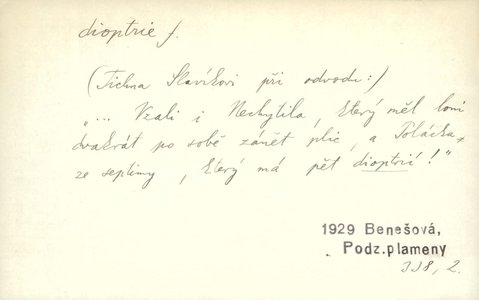 dioptrie f.
(Tichna Slavíkovi při odvodu:)
"... Vzali i Nechytila, který měl loni
dvakrát po sobě zánět plic, a Poláčka
ze septimy, který má pět dioptrií!"
1929 Benešová,
Podz.plameny
338, 2.